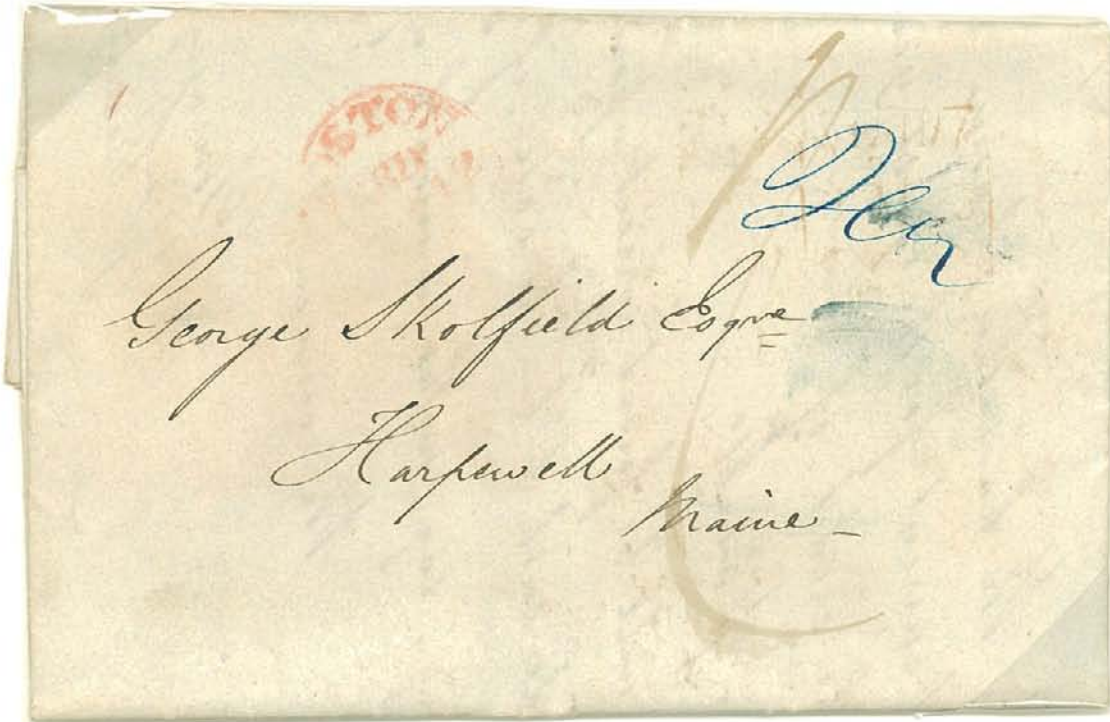 STON
George Skolfield Esqre
Harpswell
Maine